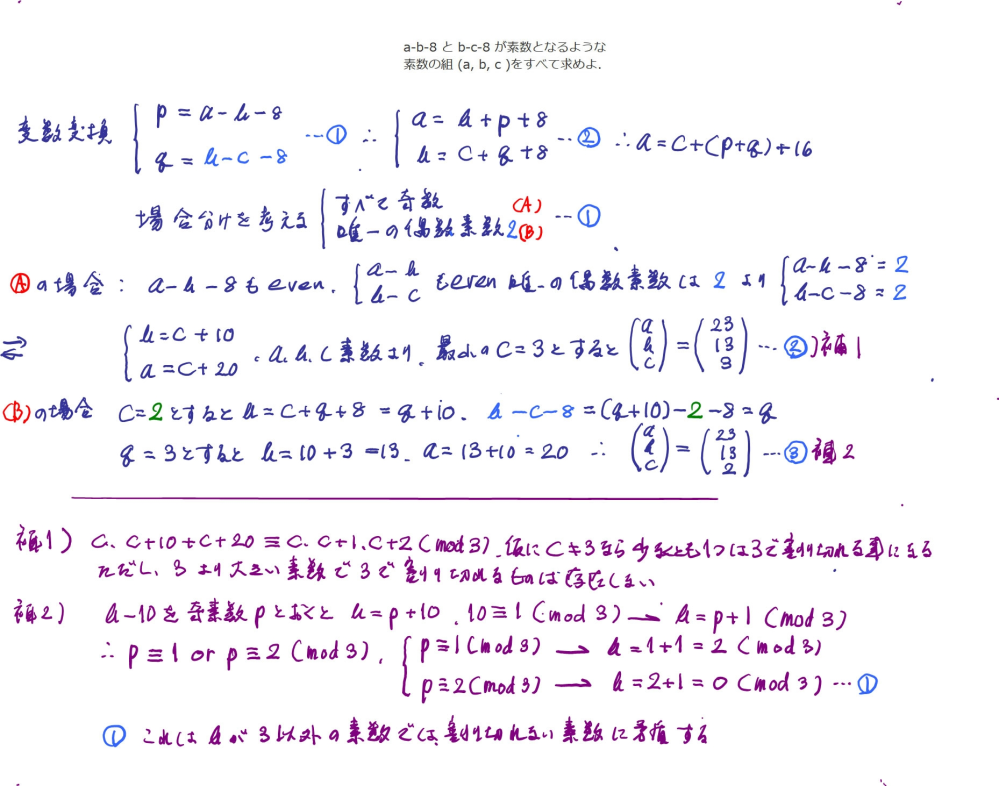 a-b-8 と b-c-8 が素数となるような
素数の組 (a, b, c )をすべて求めよ.
変数変換 { p = a-b-8 q = b-c-8 …① ∴ { a = b+p+8 b = c+q+8 …② ∴ a = c+(p+q)+16
場合分けを考える { すべて奇数 (A) 唯一の偶数素数2(B) …①
Ⓐの場合: a-b-8もeven. { a-b b-c もeven 唯一の偶数素数は 2 より { a-b-8 = 2 b-c-8 = 2
⇄ { b=c+10 a=c+20 . a.b.c 素数より. 最小のc=3とすると (a b c) = (23 13 3) …②)補1
(B)の場合 c=2とするとb=c+q+8 = q+10. b-c-8 = (q+10)-2-8 = q
q = 3とすると b=10+3 =13. a=13+10=20 ∴ (a b c) = (23 13 2) …③ 補2
補1) c、c+10+c+20 ≡ c. c+1.c+2 (mod 3) .仮に c≠3なら少なくとも1つは3で割り切れる事になる
ただし、3より大きい素数で3で割り切れるものは存在しない
補2) b-10を奇素数pとおくと b=p+10 . 10≡1 (mod 3) → b=p+1 (mod 3)
∴ p≡1 or p≡2 (mod 3), { p≡1(mod 3) → b=1+1=2 (mod 3)
p≡2(mod 3) → b=2+1=0 (mod 3) …①
① これはbが3以外の素数では、割り切れない素数に矛盾する